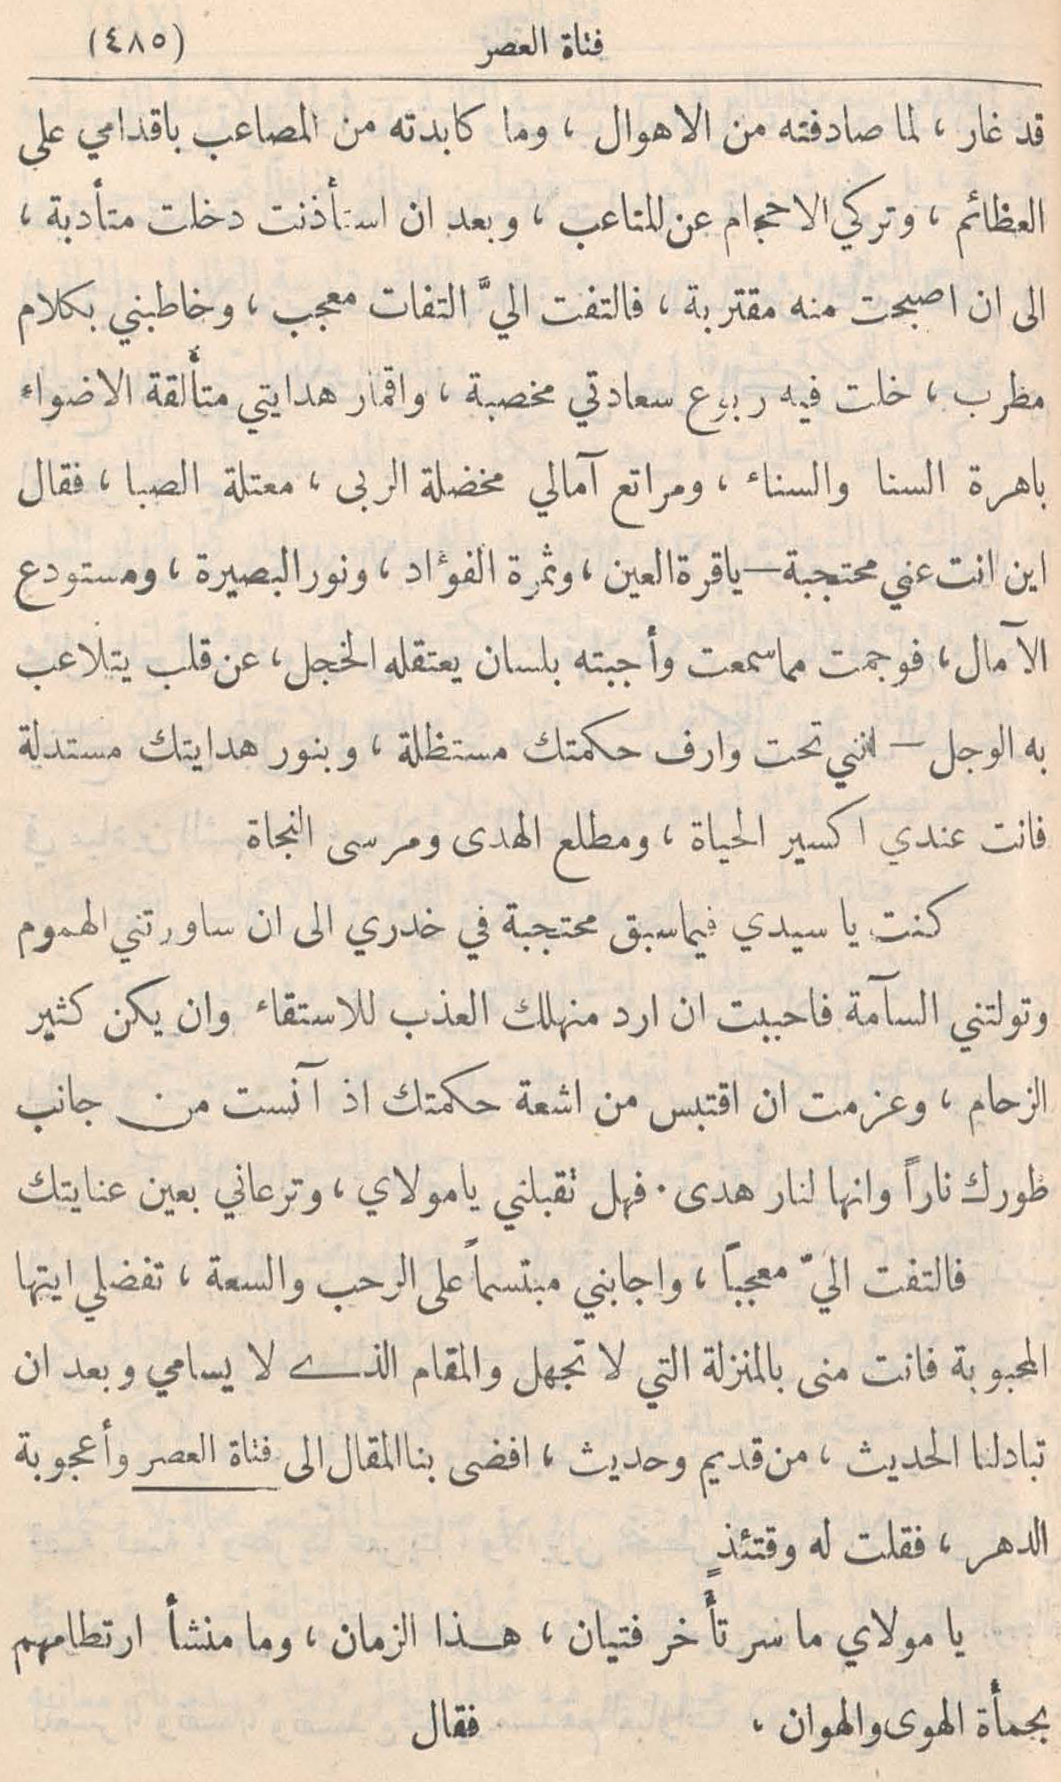 فتاة العصر (٤٨٥)
قد غار ، لما صادفته من الاهوال ، وما كابدته من المصاعب باقدامي على
العظائم ، وتركي الاحجام عن المتاعب ، وبعد ان استأذنت دخلت متأدبة ،
الى ان اصبحت منه مقتربة ، فالتفت اليَّ التفات معجب ، وخاطبني بكلام
مطرب ، خلت فيه ربوع سعادتي مخصبة ، واقمار هدايتي متألقة الاضواء
باهرة السنا والسناء ، ومراتع آمالي مخضلة الربى ، معتلة الصبا ، فقال
اين انت عني محتجبة — ياقرة العين ، وثمرة الفؤاد ، ونور البصيرة ، ومستودع
الآمال ، فوجمت مماسمعت وأجبته بلسان يعتقله الخجل ، عن قلب يتلاعب
به الوجل — انني تحت وارف حكمتك مستظلة ، وبنور هدايتك مستدلة
فانت عندي اكسير الحياة ، ومطلع الهدى ومرسى النجاة
كنت يا سيدي فيماسبق محتجبة في خدري الى ان ساورتني الهموم
وتولتني السآمة فاحببت ان ارد منهلك العذب للاستقاء وان يكن كثير
الزحام ، وعزمت ان اقتبس من اشعة حكمتك اذ آنست من جانب
طورك ناراً وانها لنار هدى . فهل تقبلني يامولاي ، وترعاني بعين عنايتك
فالتفت اليّ معجباً ، واجابني مبتسماً على الرحب والسعة ، تفضلي ايتها
المحبوبة فانت منى بالمنزلة التي لا تجهل والمقام الذى لا يسامي وبعد ان
تبادلنا الحديث ، من قديم وحديث ، افضى بنا المقال الى فتاة العصر وأعجوبة
الدهر ، فقلت له وقتئذٍ
يا مولاي ما سر تأخر فتيان ، هذا الزمان ، وما منشأ ارتطامهم
بحمأة الهوى والهوان ، فقال